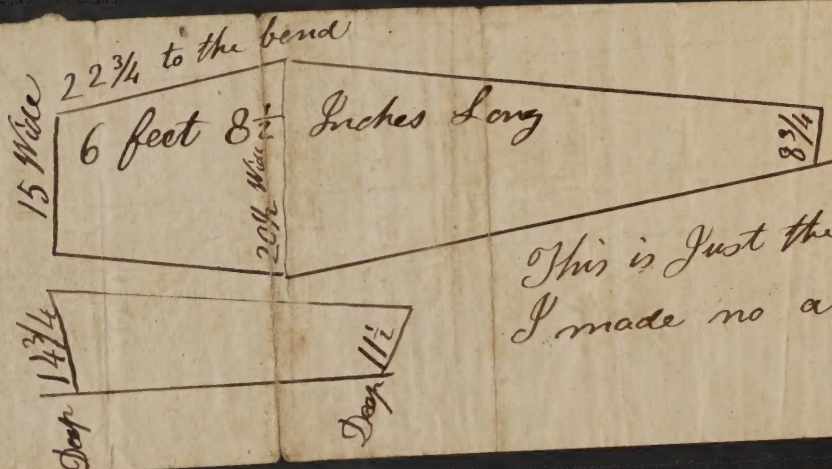 22 3/4 to the bend
15 Wide
6 feet 8 1/2 Inches Long
20 1/2 Wide
8 3/4
This is Just the
I made no a
14 3/4 Deep
11 1/2 Deep